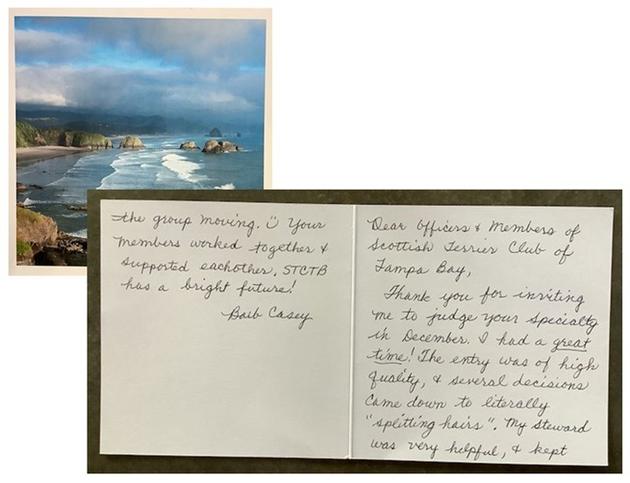 Dear Officers & Members of
Scottish Terrier Club of
Tampa Bay,
Thank you for inviting
me to judge your specialty
in December. I had a great
time! The entry was of high
quality, & several decisions
came down to literally
"splitting hairs". My steward
was very helpful, & kept
the group moving. :) Your
members worked together &
supported eachother. STCTB
has a bright future!
Barb Casey